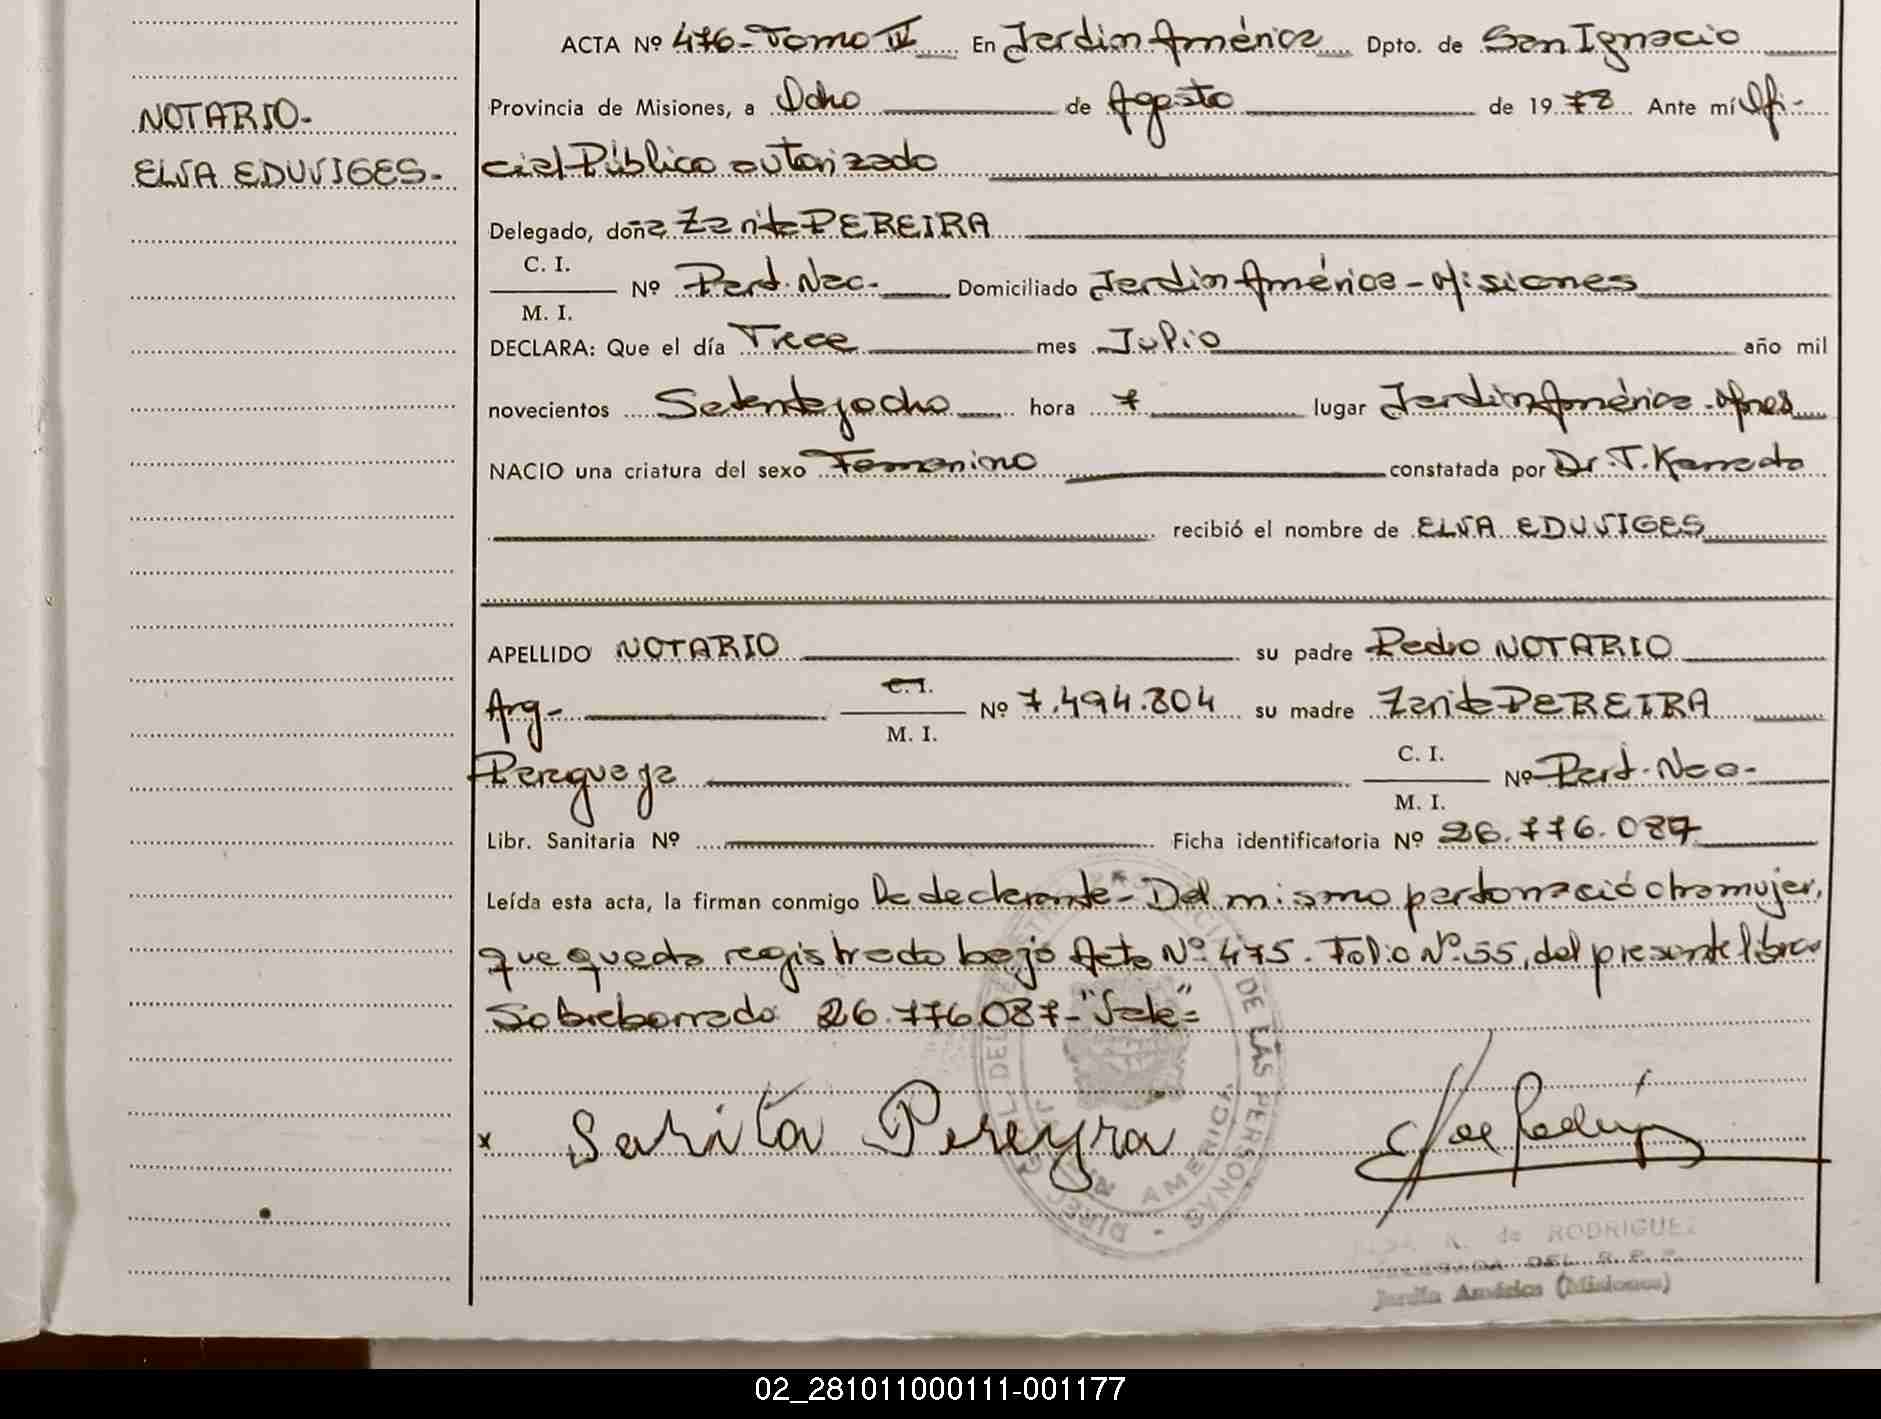 ACTA Nº 476-Tomo IV En Jardín América Dpto. de San Ignacio
Provincia de Misiones, a Ocho de Agosto de 1978 Ante mí Ofi-
NOTARIO-
ELVA EDUVIGES-
cial Público autorizado
Delegado, doña Zarita PEREIRA
C. I.
M. I.
Nº Part. Nac.- Domiciliado Jardín América - Misiones
DECLARA: Que el día Trece mes Julio año mil
novecientos Setentayocho hora 7 lugar Jardín América - Mnes
NACIO una criatura del sexo Femenino constatada por Dr. T.
recibió el nombre de ELVA EDUVIGES
APELLIDO NOTARIO su padre Pedro NOTARIO
Arg- C. I.
M. I. Nº 7.494.804 su madre Zarita PEREIRA
Paraguaya C. I.
M. I. Nº Part. Nac.-
Libr. Sanitaria Nº Ficha identificatoria Nº 26.776.087
Leída esta acta, la firman conmigo la declarante- Del mismo parto nació otra mujer,
que queda registrada bajo Acta Nº 475. Folio Nº 55, del presente libro
Sobreborrado 26.776.087- "Vale"=
x Sarita Pereyra
JARDIN AMERICA
DE LAS PERSONAS
de RODRIGUEZ
DELEGADA DEL R.P.P.
Jardín América (Misiones)
02_281011000111-001177